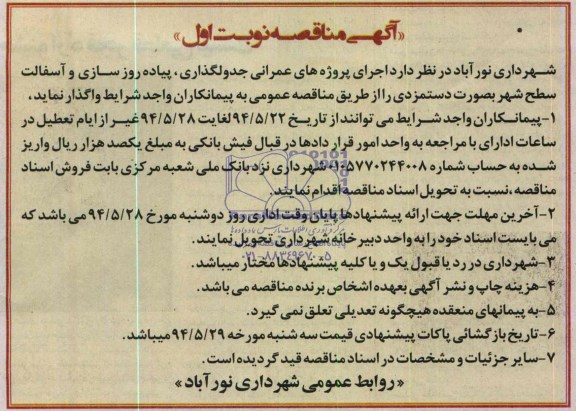 «آگهی مناقصه نوبت اول»
شهرداری نورآباد در نظر دارد اجرای پروژه های عمرانی جدولگذاری، پیاده روز سازی و آسفالت
سطح شهر بصورت دستمزدی را از طریق مناقصه عمومی به پیمانکاران واجد شرایط واگذار نماید،
۱-پیمانکاران واجد شرایط می توانند از تاریخ ۹۴/۵/۲۲ لغایت ۹۴/۵/۲۸ غیر از ایام تعطیل در
ساعات ادارای با مراجعه به واحد امور قرار دادها در قبال فیش بانکی به مبلغ یکصد هزار ریال واریز
شده به حساب شماره ۰۱۰۵۷۷۰۲۴۴۰۰۸ شهرداری نزد بانک ملی شعبه مرکزی بابت فروش اسناد
مناقصه، نسبت به تحویل اسناد مناقصه اقدام نمایند.
۲-آخرین مهلت جهت ارائه پیشنهادها پایان وقت اداری روز دوشنبه مورخ ۹۴/۵/۲۸ می باشد که
می بایست اسناد خود را به واحد دبیرخانه شهرداری تحویل نمایند.
۰۲۱-۸۸۳۴۹۶۷۰-۵
۳-شهرداری در رد یا قبول یک و یا کلیه پیشنهادها مختار میباشد.
۴-هزینه چاپ و نشر آگهی بعهده اشخاص برنده مناقصه می باشد.
۵-به پیمانهای منعقده هیچگونه تعدیلی تعلق نمی گیرد.
۶-تاریخ بازگشائی پاکات پیشنهادی قیمت سه شنبه مورخه ۹۴/۵/۲۹ میباشد.
۷-سایر جزئیات و مشخصات در اسناد مناقصه قید گردیده است.
«روابط عمومی شهرداری نورآباد»